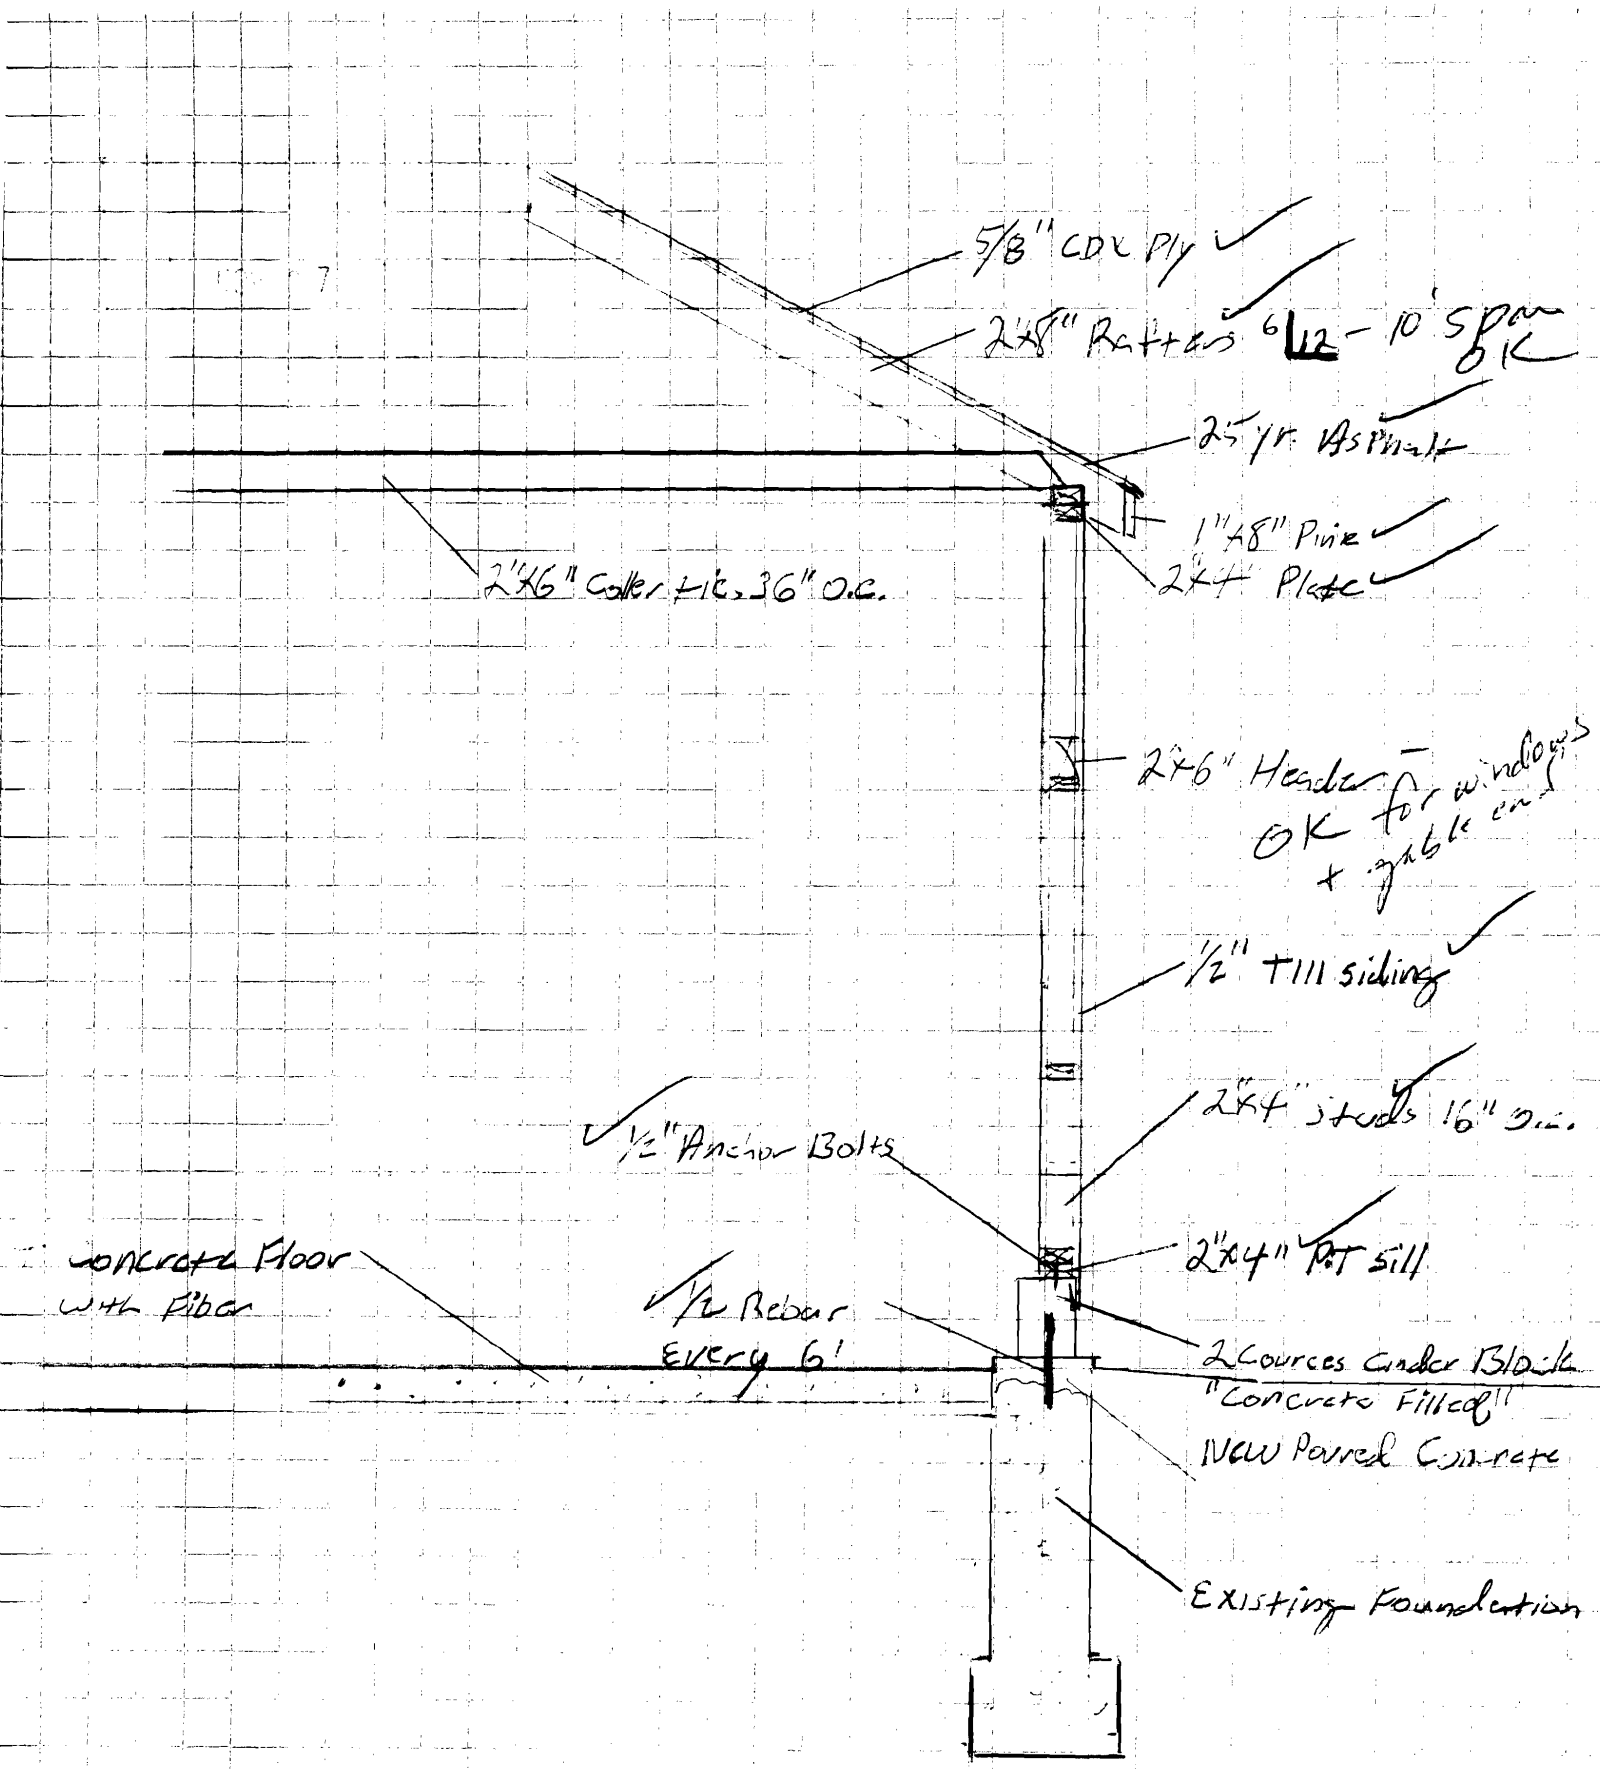 5/8" CDX Ply
2"x8" Rafters 6/12 - 10' span
OK
25 yr. Asphalt
1"x8" Pine
2"x4" Plate
2"x6" Coller tie, 36" O.C.
2"x6" Header -
OK for windows
+ gable end
1/2" T111 siding
2"x4" studs 16" O.C.
1/2" Anchor Bolts
2"x4" P.T sill
Concrete Floor
with Fiber
1/2 Rebar
Every 6'
2 Cources Cinder Block
"Concrete Filled"
New Poured Concrete
Existing Foundation